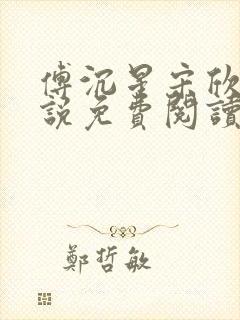 傅沉星宋欣
說免費閱讀
鄭哲敏